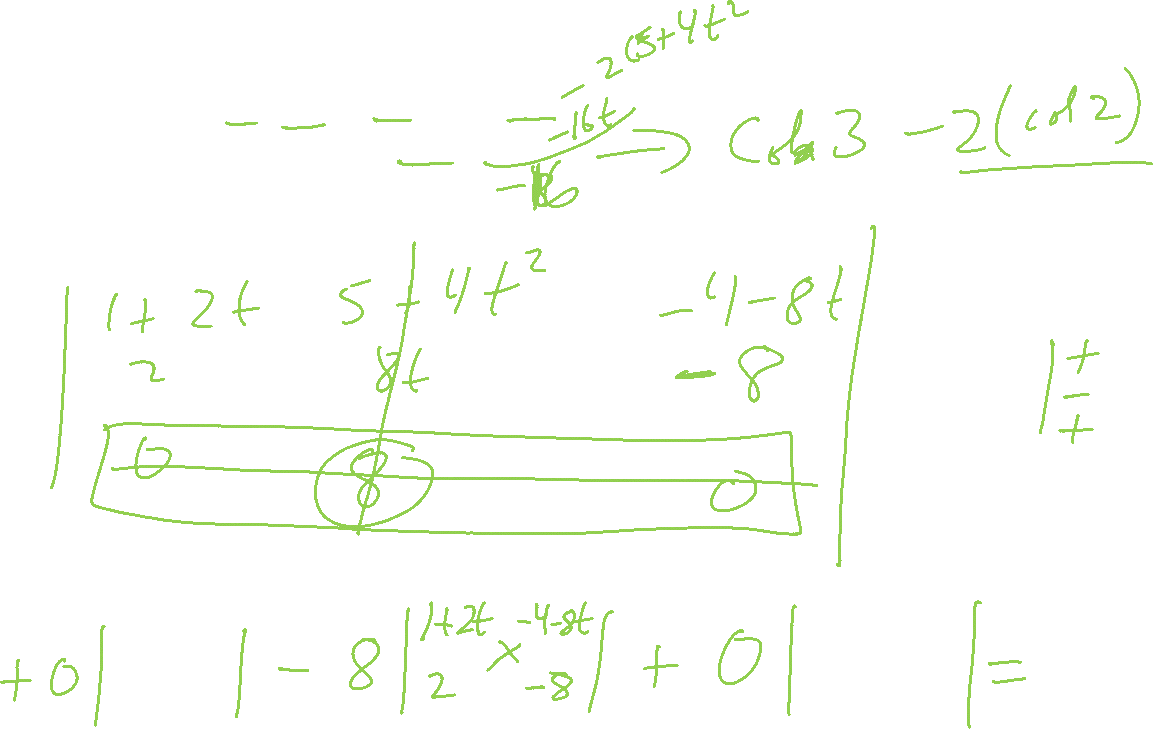 -2(5+4t²
- - - - -16t
- - -16 → Col 3 - 2(col 2)
| 1+2t 5+4t² -4-8t |
| 2 8t -8 | | + - +
| 0 8 0 |
+0| | - 8| 1+2t -4-8t | + 0| | =
2 -8